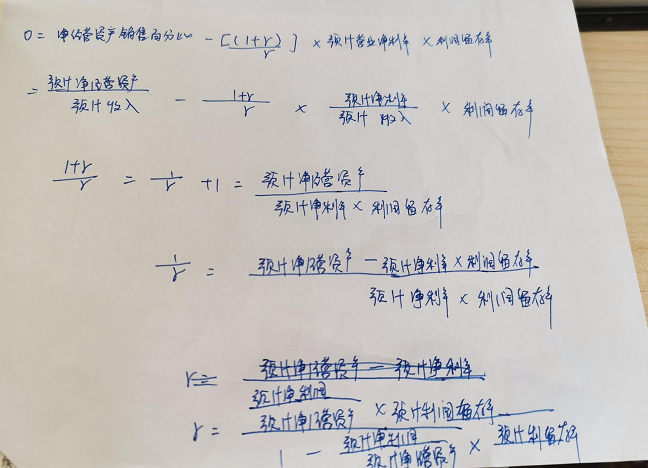 0 = 净经营资产销售百分比 - [(1+r)/r] × 预计营业净利率 × 利润留存率
= 预计净经营资产/预计收入 - (1+r)/r × 预计净利率/预计收入 × 利润留存率
(1+r)/r = 1/r + 1 = 预计净经营资产/(预计净利率 × 利润留存率)
1/r = (预计净经营资产 - 预计净利率 × 利润留存率)/(预计净利率 × 利润留存率)
r = 预计净经营资产 - 预计净利率
r = 预计净利润/预计净经营资产 × 预计利润留存率/(1 - 预计净利润/预计净经营资产 × 预计利留存率)